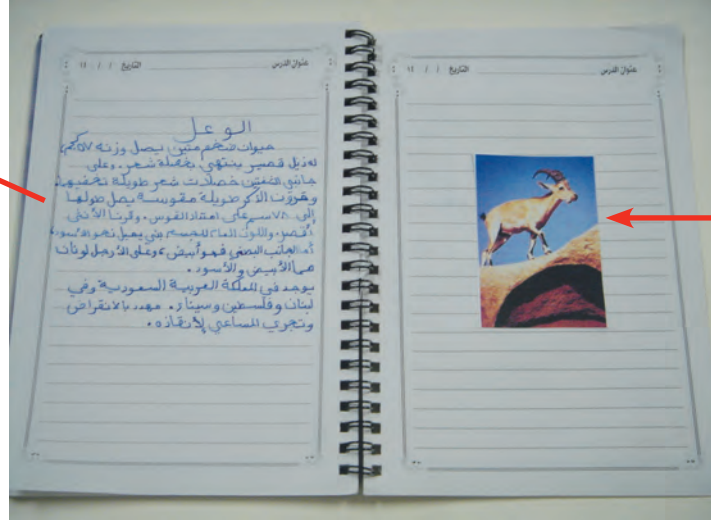 عنوان الدرس التاريخ / / ١٤
الوعل
حيوان ضخم متين يصل وزنه ٧٥ كجم،
له ذيل قصير ينتهي بخصلة شعر. وعلى
جانبي شعر طويلة تخفيها.
وقرون الذكر طويلة مقوسة يصل طولها
إلى ٧٥ سم على امتداد القوس. وقرنا الأنثى
أقصر. واللون العام للجسم بني يميل نحو الأسود،
أما الجانب البطني فهو أبيض، وعلى الأرجل لونان
هما الأبيض والأسود.
يوجد في المملكة العربية السعودية وفي
لبنان وفلسطين وسيناء. مهدد بالانقراض
وتجري المساعي لإنقاذه.
عنوان الدرس التاريخ / / ١٤